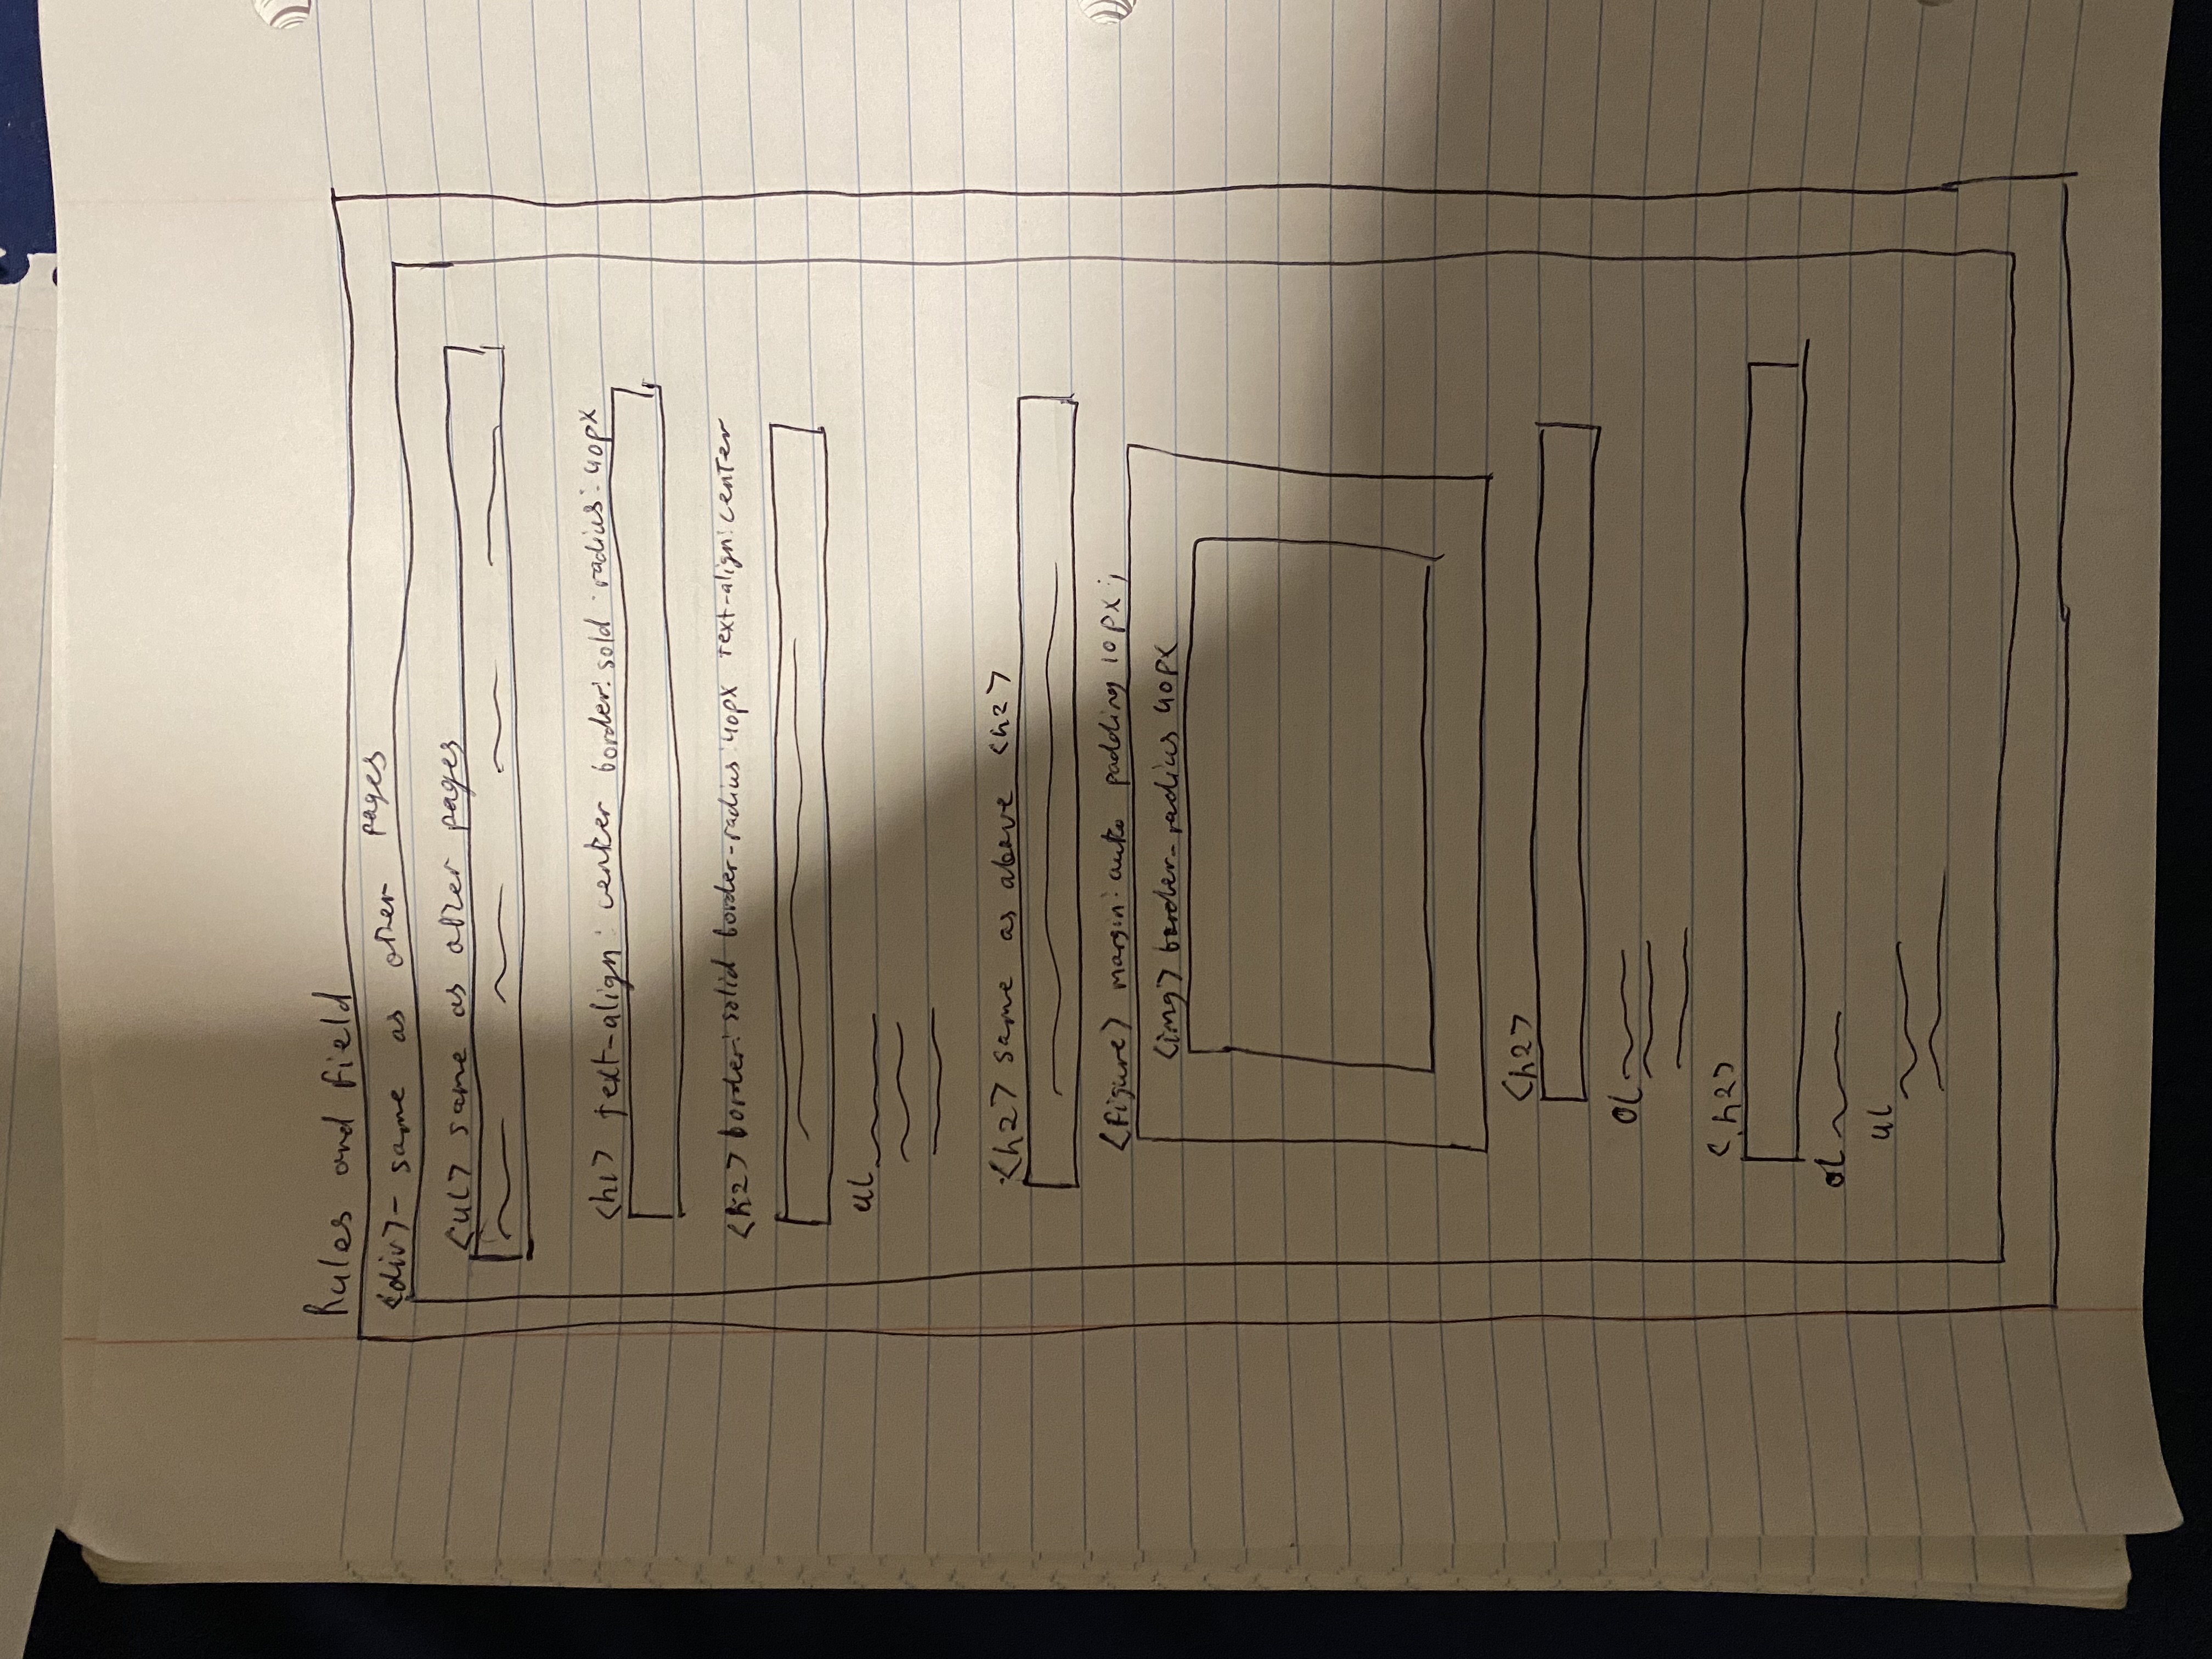 Rules and field
<div> - same as other pages
<ul> same as other pages
<h1> text-align: center border: sold radius: 40px
<h2> border: solid border-radius: 40px text-align: center
ul
<h2> same as above <h2>
<figure> margin: auto padding 10px;
<img> border-radius 40px
<h2>
ol
<h2>
ol
ul